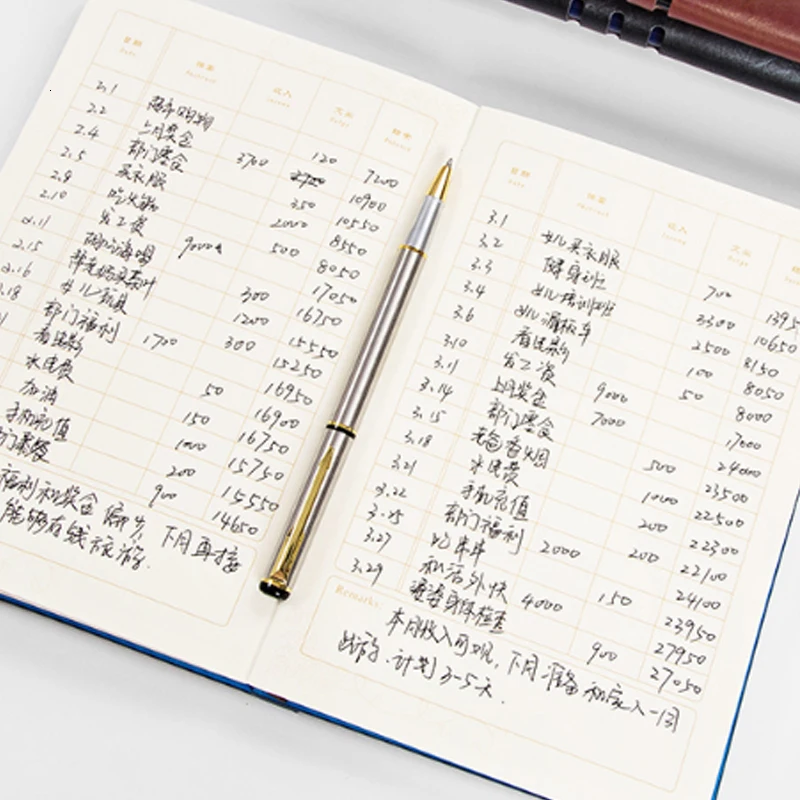 日期 摘要 收入 支出 结余
Date Abstract Income Budget Balance
2.1 超市购物 120 7200
2.2 上月奖金 3700 10900
2.4 部门聚会 350 10550
2.5 买衣服 2000 8550
2.9 吃火锅 500 8050
2.10 发工资 9000 17050
2.11 300 16750
2.15 1200 15550
2.16 女儿玩具 300 15250
2.18 部门福利 1700 16950
看电影 50 16900
水电费 150 16750
加油 1000 15750
手机充值 200 15550
部门聚餐 900 14650
福利和奖金偏少,下月再接
能够有钱旅游.
日期 摘要 收入 支出 结余
Date Abstract Income Budget
3.1 女儿买衣服 700 1395
3.2 健身班 3300 10650
3.3 女儿培训班 2500 8150
3.4 女儿滑板车 100 8050
3.6 看电影 50 8000
3.10 发工资 9000 17000
3.11 上月奖金 7000 24000
3.14 部门聚会 500 23500
3.15 老爸香烟 1000 22500
3.18 水电费 200 22300
3.21 手机充值 200 22100
3.22 部门福利 2000 24100
3.25 吃串串 150 23950
3.27 私活外快 4000 27950
3.29 婆婆身体检查 900 27050
Remarks
本月收入可观,下月准备和家人一同
出游.计划3-5天.